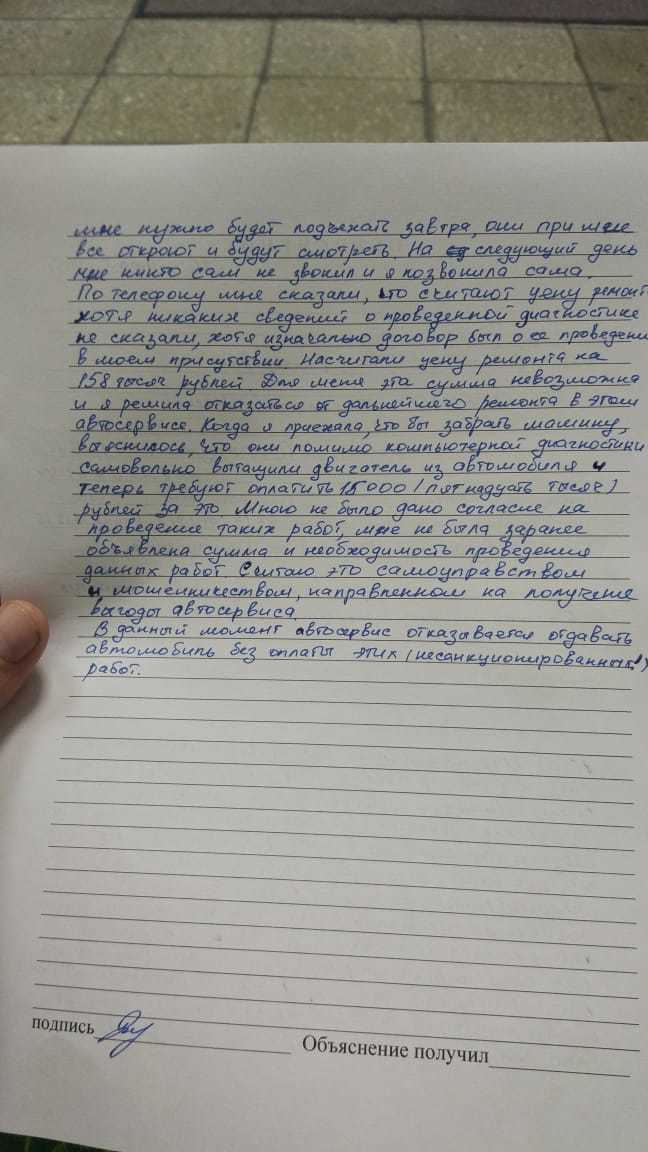 мне нужно будет подъехать завтра, они при мне
все откроют и будут смотреть. На следующий день
мне никто сам не звонил и я позвонила сама.
По телефону мне сказали, что считают цену ремонт
хотя никаких сведений о проведенной диагностике
не сказали, хотя изначально договор был о ее проведени
в моем присутствии. Насчитали цену ремонта на
158 тысяч рублей Для меня эта сумма невозможна
и я решила отказаться от дальнейшего ремонта в этом
автосервисе. Когда я приехала, что бы забрать машину,
выяснилось, что они помимо компьютерной диагностики
самовольно вытащили двигатель из автомобиля и
теперь требуют оплатить 15000 (пятнадцать тысяч)
рублей за это Мною не было дано согласие на
проведение таких работ, мне не была заранее
объявлена сумма и необходимость проведения
данных работ. Считаю это самоуправством
и мошенничеством, направленном на получение
выгоды автосервиса.
В данный момент автосервис отказывается отдавать
автомобиль без оплаты этих (несанкционированных!)
работ.
подпись
Объяснение получил